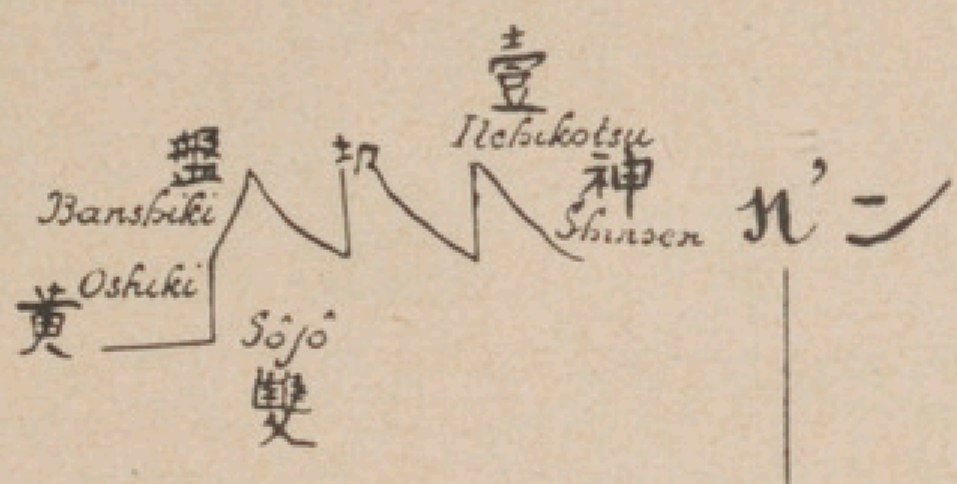 壹
Ilchikotsu
盤
神
Banshiki
Shinsen
n' ン
Oshiki
黄
Sôjô
雙